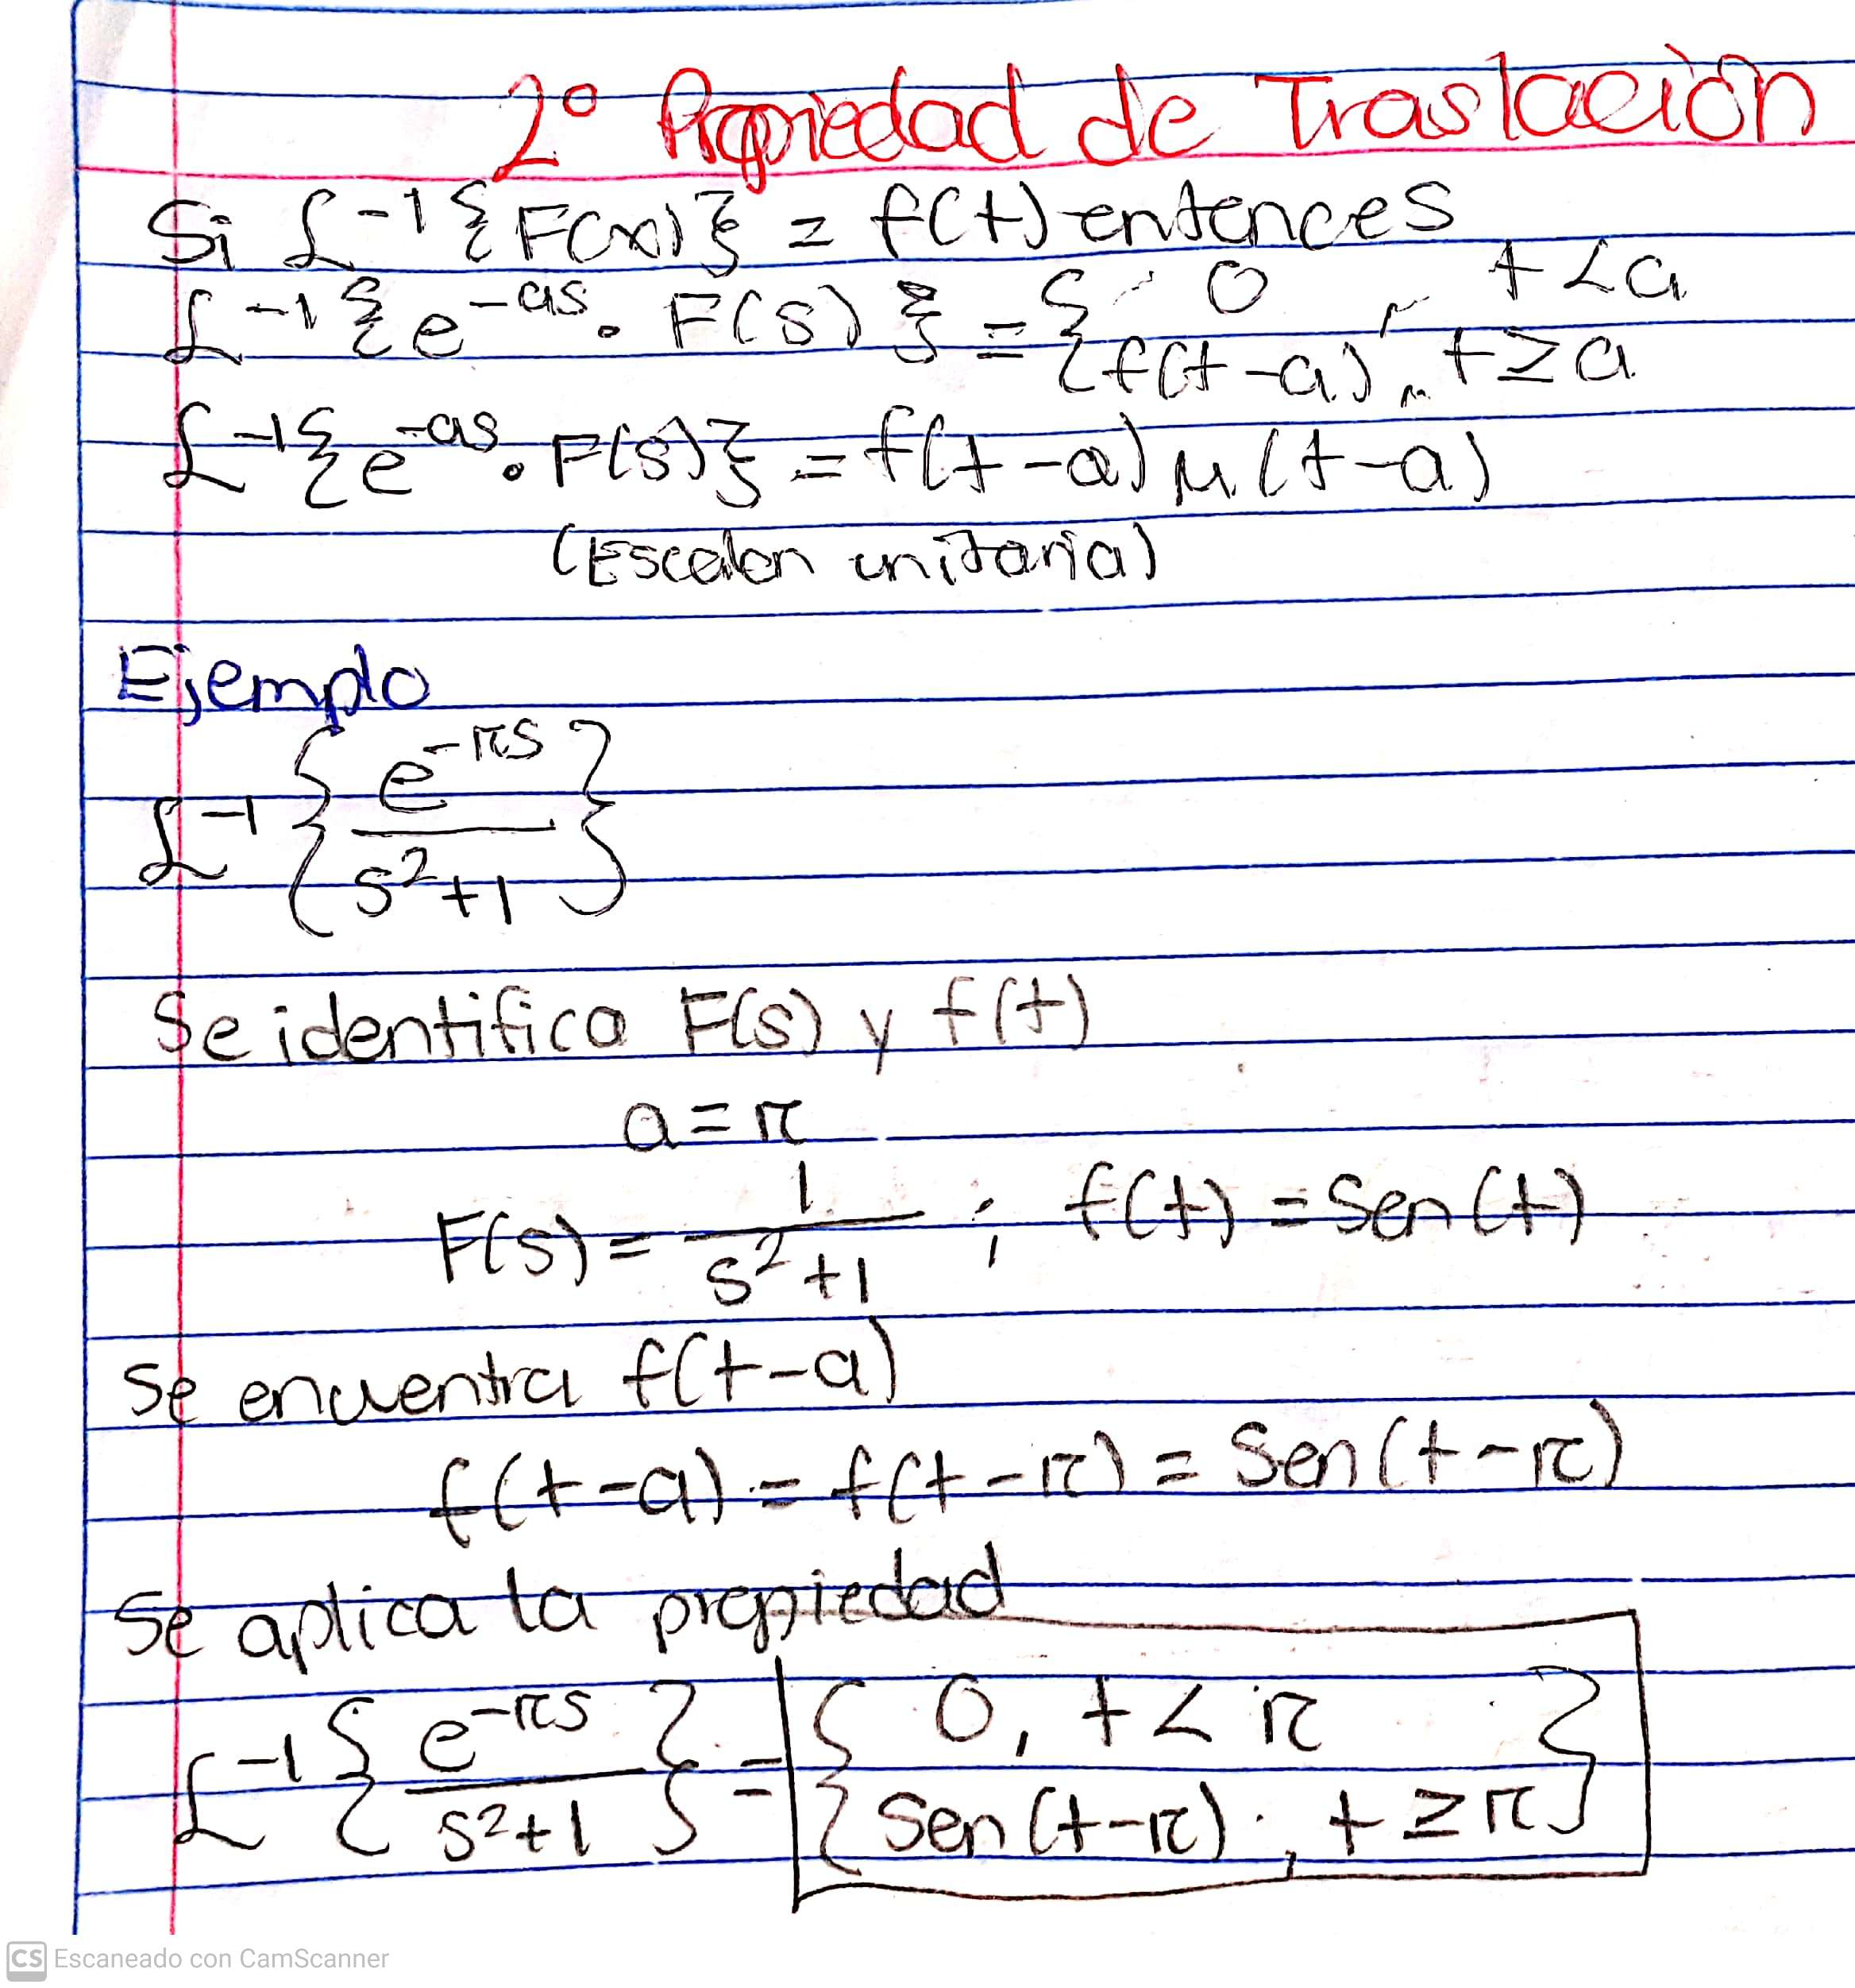 2° Propiedad de Traslación
Si ℒ⁻¹{F(x)} = f(t) entonces
ℒ⁻¹{e^-as · F(s)} = { 0 , t<a
f(t-a) , t≥a
ℒ⁻¹{e^-as · F(s)} = f(t-a) μ(t-a)
(Escalon unitaria)
Ejemplo
ℒ⁻¹{ e^-πs / s²+1 }
Se identifica F(s) y f(t)
a=π
F(s) = 1 / s²+1 ; f(t) = Sen(t)
Se encuentra f(t-a)
f(t-a) = f(t-π) = Sen(t-π)
Se aplica la propiedad
ℒ⁻¹{ e^-πs / s²+1 } = { 0, t<π
Sen(t-π) ; t≥π }
CS Escaneado con CamScanner